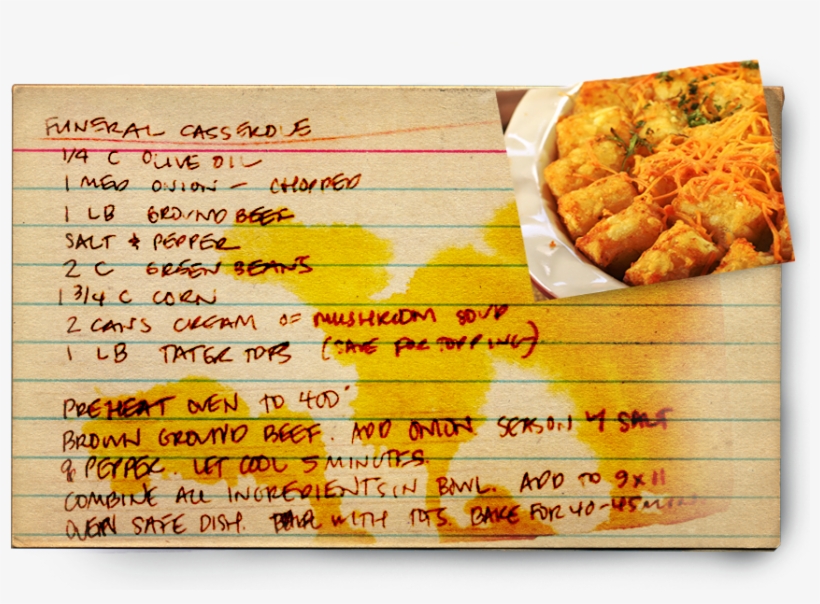 FUNERAL CASSEROLE
1/4 C OLIVE OIL
1 MED ONION - CHOPPED
1 LB GROUND BEEF
SALT & PEPPER
2 C GREEN BEANS
1 3/4 C CORN
2 CANS CREAM OF MUSHROOM SOUP
1 LB TATER TOTS (SAVE FOR TOPPING)
PREHEAT OVEN TO 400°
BROWN GROUND BEEF. ADD ONION SEASON W SALT
& PEPPER. LET COOL 5 MINUTES.
COMBINE ALL INGREDIENTS IN BOWL. ADD TO 9x11
OVEN SAFE DISH. WITH TOTS. BAKE FOR 40-45